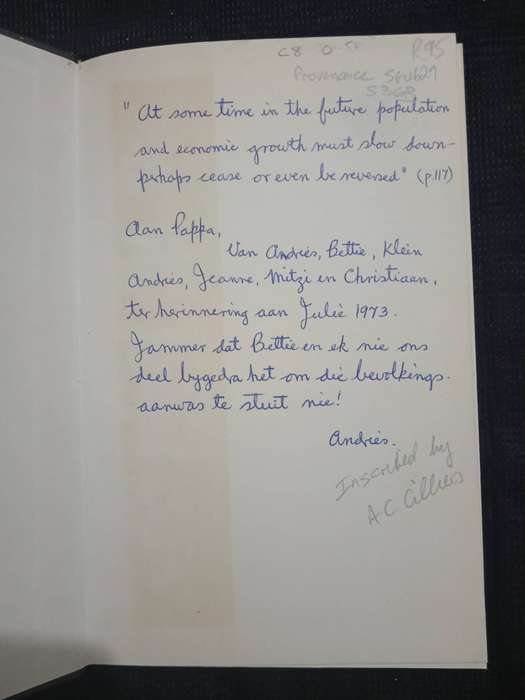 C8 R95
Provenance
" At some time in the future population
and economic growth must slow down -
perhaps cease or even be reversed" (p.117)
Aan Pappa,
Van Andriés, Bettie, Klein
Andriés, Jeanne, Mitzi en Christiaan,
ter herinnering aan Julie 1973.
Jammer dat Bettie en ek nie ons
deel bygedra het om die bevolkings-
aanwas te stuit nie!
Andriés.
Inscribed by
A C Cilliers